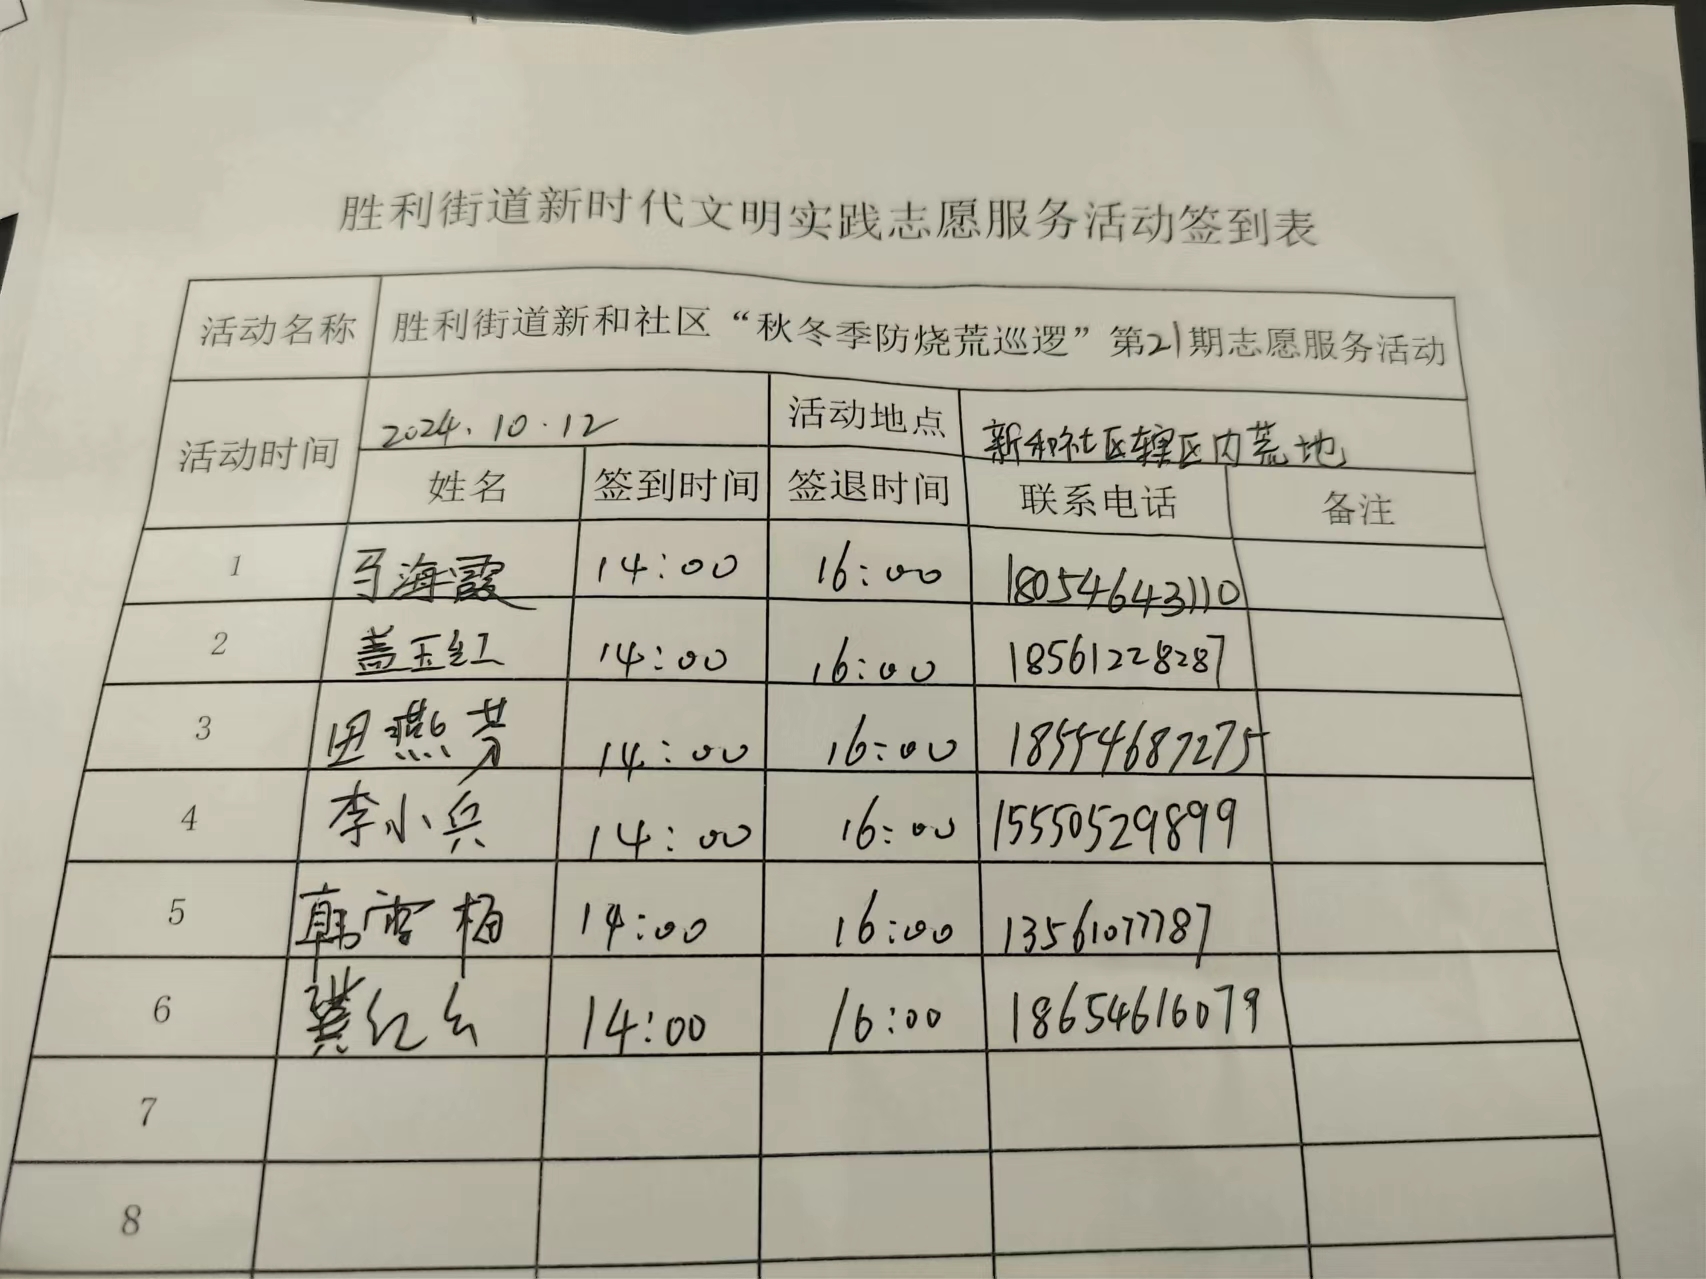 胜利街道新时代文明实践志愿服务活动签到表
活动名称 胜利街道新和社区“秋冬季防烧荒巡逻”第21期志愿服务活动
活动时间 2024.10.12 活动地点 新和社区辖区内荒地
姓名 签到时间 签退时间 联系电话 备注
1 马海霞 14:00 16:00 18054643110
2 盖玉红 14:00 16:00 18561228287
3 田燕芳 14:00 16:00 18554687275
4 李小兵 14:00 16:00 15550529899
5 韩雪梅 14:00 16:00 13561077787
6 龚红云 14:00 16:00 18654616079
7
8